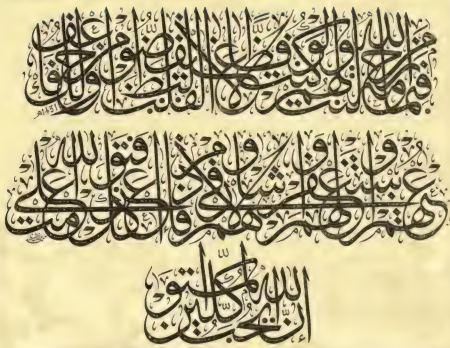 فبما رحمة من الله لنت لهم ولو كنت فظا غليظ القلب لانفضوا من حولك فاعف
١٤٣١هـ
عنهم واستغفر لهم وشاورهم في الأمر فإذا عزمت فتوكل على الله
إن الله يحب المتوكلين